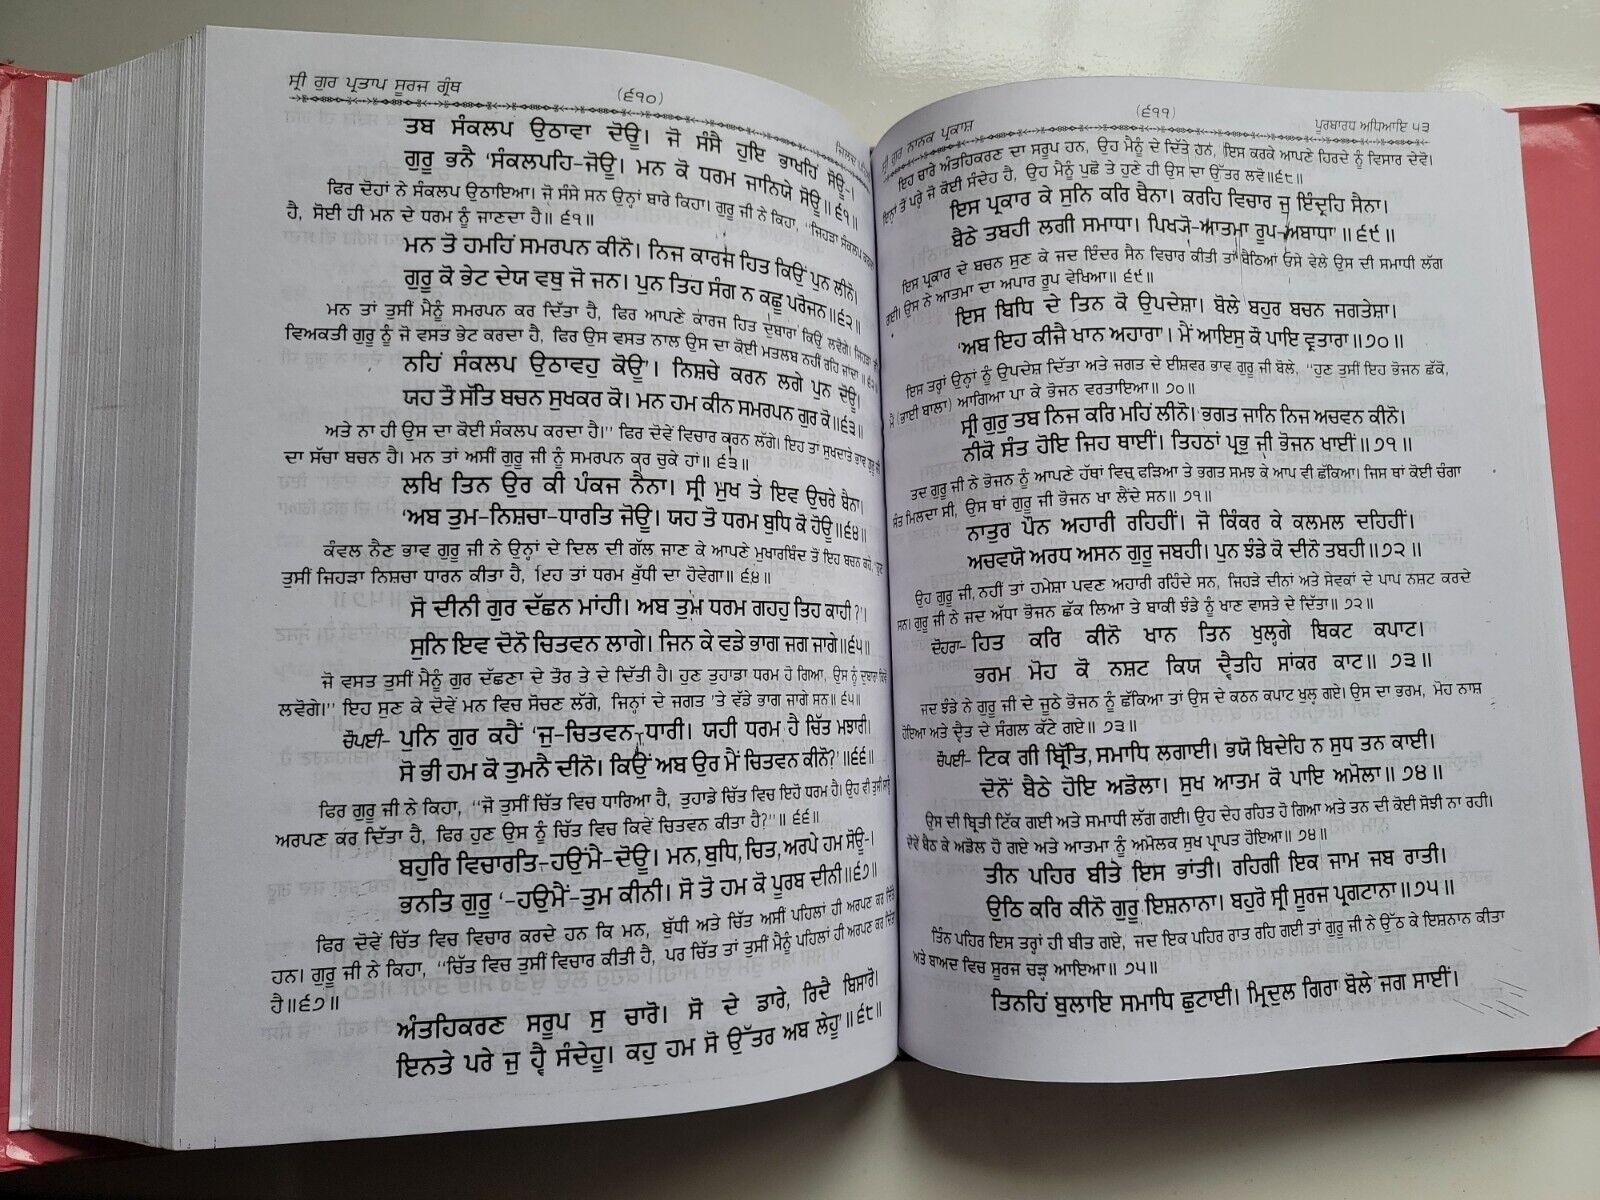 ਸ੍ਰੀ ਗੁਰ ਪ੍ਰਤਾਪ ਸੂਰਜ ਗ੍ਰੰਥ
(੬੧੦)
ਤਬ ਸੰਕਲਪ ਉਠਾਵਾ ਦੋਊ। ਜੋ ਸੰਸੈ ਹੁਇ ਭਾਖਹਿ ਸੋਊ।
ਗੁਰੂ ਭਨੈ ‘ਸੰਕਲਪਹਿ-ਜੋਊ। ਮਨ ਕੋ ਧਰਮ ਜਾਨਿਯੇ ਸੋਊ॥੬੧॥
ਫਿਰ ਦੋਹਾਂ ਨੇ ਸੰਕਲਪ ਉਠਾਇਆ। ਜੋ ਸੰਸੇ ਸਨ ਉਨ੍ਹਾਂ ਬਾਰੇ ਕਿਹਾ। ਗੁਰੂ ਜੀ ਨੇ ਕਿਹਾ, ‘‘ਜਿਹੜਾ ਸੰਕਲਪ ਕਰਦਾ
ਹੈ, ਸੋਈ ਹੀ ਮਨ ਦੇ ਧਰਮ ਨੂੰ ਜਾਣਦਾ ਹੈ॥ ੬੧॥
ਮਨ ਤੋ ਹਮਹਿਂ ਸਮਰਪਨ ਕੀਨੋ। ਨਿਜ ਕਾਰਜ ਹਿਤ ਕਿਉਂ ਪੁਨ ਲੀਨੋ।
ਗੁਰੂ ਕੋ ਭੇਟ ਦੇਯ ਵਥੁ ਜੋ ਜਨ। ਪੁਨ ਤਿਹ ਸੰਗ ਨ ਕਛੂ ਪਰੋਜਨ॥੬੨॥
ਮਨ ਤਾਂ ਤੁਸੀਂ ਮੈਨੂੰ ਸਮਰਪਨ ਕਰ ਦਿੱਤਾ ਹੈ, ਫਿਰ ਆਪਣੇ ਕਾਰਜ ਹਿਤ ਦੁਬਾਰਾ ਕਿਉਂ ਲਵੋਗੇ। ਜਿਹੜਾ ਵੀ
ਵਿਅਕਤੀ ਗੁਰੂ ਨੂੰ ਜੋ ਵਸਤ ਭੇਟ ਕਰਦਾ ਹੈ, ਫਿਰ ਉਸ ਵਸਤ ਨਾਲ ਉਸ ਦਾ ਕੋਈ ਮਤਲਬ ਨਹੀਂ ਰਹਿ ਜਾਂਦਾ॥ ੬੨॥
ਨਹਿਂ ਸੰਕਲਪ ਉਠਾਵਹੁ ਕੋਊ’। ਨਿਸ਼ਚੇ ਕਰਨ ਲਗੇ ਪੁਨ ਦੋਊ।
ਯਹ ਤੌ ਸੱਤਿ ਬਚਨ ਸੁਖਕਰ ਕੋ। ਮਨ ਹਮ ਕੀਨ ਸਮਰਪਨ ਗੁਰ ਕੋ॥੬੩॥
ਅਤੇ ਨਾ ਹੀ ਉਸ ਦਾ ਕੋਈ ਸੰਕਲਪ ਕਰਦਾ ਹੈ।’’ ਫਿਰ ਦੋਵੇਂ ਵਿਚਾਰ ਕਰਨ ਲੱਗੇ। ਇਹ ਤਾਂ ਸੁਖਦਾਤੇ ਭਾਵ ਗੁਰੂ ਜੀ
ਦਾ ਸੱਚਾ ਬਚਨ ਹੈ। ਮਨ ਤਾਂ ਅਸੀਂ ਗੁਰੂ ਜੀ ਨੂੰ ਸਮਰਪਨ ਕਰ ਚੁਕੇ ਹਾਂ॥ ੬੩॥
ਲਖਿ ਤਿਨ ਉਰ ਕੀ ਪੰਕਜ ਨੈਨਾ। ਸ੍ਰੀ ਮੁਖ ਤੇ ਇਵ ਉਚਰੇ ਬੈਨਾ।
‘ਅਬ ਤੁਮ-ਨਿਸ਼ਚਾ-ਧਾਰਤਿ ਜੋਊ। ਯਹ ਤੋ ਧਰਮ ਬੁਧਿ ਕੋ ਹੋਊ॥੬੪॥
ਕੰਵਲ ਨੈਣ ਭਾਵ ਗੁਰੂ ਜੀ ਨੇ ਉਨ੍ਹਾਂ ਦੇ ਦਿਲ ਦੀ ਗੱਲ ਜਾਣ ਕੇ ਆਪਣੇ ਮੁਖਾਰਬਿੰਦ ਤੋਂ ਇਹ ਬਚਨ ਕਹੇ, ‘‘ਹੁਣ
ਤੁਸੀਂ ਜਿਹੜਾ ਨਿਸ਼ਚਾ ਧਾਰਨ ਕੀਤਾ ਹੈ, ਇਹ ਤਾਂ ਧਰਮ ਬੁੱਧੀ ਦਾ ਹੋਵੇਗਾ॥ ੬੪॥
ਸੋ ਦੀਨੀ ਗੁਰ ਦੱਛਨ ਮਾਂਹੀ। ਅਬ ਤੁਮ ਧਰਮ ਗਹਹੁ ਤਿਹ ਕਾਹੀ ?’।
ਸੁਨਿ ਇਵ ਦੋਨੋ ਚਿਤਵਨ ਲਾਗੇ। ਜਿਨ ਕੇ ਵਡੇ ਭਾਗ ਜਗ ਜਾਗੇ॥੬੫॥
ਜੋ ਵਸਤ ਤੁਸੀਂ ਮੈਨੂੰ ਗੁਰ ਦੱਛਣਾ ਦੇ ਤੌਰ ਤੇ ਦੇ ਦਿੱਤੀ ਹੈ। ਹੁਣ ਤੁਹਾਡਾ ਧਰਮ ਹੋ ਗਿਆ, ਉਸ ਨੂੰ ਦੁਬਾਰਾ ਕਿਵੇਂ
ਲਵੋਗੇ।’’ ਇਹ ਸੁਣ ਕੇ ਦੋਵੇਂ ਮਨ ਵਿਚ ਸੋਚਣ ਲੱਗੇ, ਜਿਨ੍ਹਾਂ ਦੇ ਜਗਤ ’ਤੇ ਵੱਡੇ ਭਾਗ ਜਾਗੇ ਸਨ॥ ੬੫॥
ਚੌਪਈ- ਪੁਨਿ ਗੁਰ ਕਹੈਂ ‘ਜੁ-ਚਿਤਵਨ-ਧਾਰੀ। ਯਹੀ ਧਰਮ ਹੈ ਚਿੱਤ ਮਝਾਰੀ।
ਸੋ ਭੀ ਹਮ ਕੋ ਤੁਮਨੈ ਦੀਨੋ। ਕਿਉਂ ਅਬ ਉਰ ਮੈਂ ਚਿਤਵਨ ਕੀਨੋ?’॥੬੬॥
ਫਿਰ ਗੁਰੂ ਜੀ ਨੇ ਕਿਹਾ, ‘‘ਜੋ ਤੁਸੀਂ ਚਿੱਤ ਵਿਚ ਧਾਰਿਆ ਹੈ, ਤੁਹਾਡੇ ਚਿੱਤ ਵਿਚ ਇਹੋ ਧਰਮ ਹੈ। ਉਹ ਵੀ ਤੁਸੀਂ ਸਾਨੂੰ
ਅਰਪਣ ਕਰ ਦਿੱਤਾ ਹੈ, ਫਿਰ ਹੁਣ ਉਸ ਨੂੰ ਚਿੱਤ ਵਿਚ ਕਿਵੇਂ ਚਿਤਵਨ ਕੀਤਾ ਹੈ?’’॥ ੬੬॥
ਬਹੁਰਿ ਵਿਚਾਰਤਿ-ਹਉਂਮੈ-ਦੋਊ। ਮਨ, ਬੁਧਿ, ਚਿਤ, ਅਰਪੇ ਹਮ ਸੋਊ-।
ਭਨਤਿ ਗੁਰੂ ‘-ਹਉਮੈਂ-ਤੁਮ ਕੀਨੀ। ਸੋ ਤੋ ਹਮ ਕੋ ਪੂਰਬ ਦੀਨੀ॥੬੭॥
ਫਿਰ ਦੋਵੇਂ ਚਿੱਤ ਵਿਚ ਵਿਚਾਰ ਕਰਦੇ ਹਨ ਕਿ ਮਨ, ਬੁੱਧੀ ਅਤੇ ਚਿੱਤ ਅਸੀਂ ਪਹਿਲਾਂ ਹੀ ਅਰਪਣ ਕਰ ਦਿੱਤੇ
ਹਨ। ਗੁਰੂ ਜੀ ਨੇ ਕਿਹਾ, ‘‘ਚਿੱਤ ਵਿਚ ਤੁਸੀਂ ਵਿਚਾਰ ਕੀਤੀ ਹੈ, ਪਰ ਚਿੱਤ ਤਾਂ ਤੁਸੀਂ ਮੈਨੂੰ ਪਹਿਲਾਂ ਹੀ ਅਰਪਣ ਕਰ ਦਿੱਤਾ
ਹੈ॥੬੭॥
ਅੰਤਹਿਕਰਣ ਸਰੂਪ ਸੁ ਚਾਰੋ। ਸੋ ਦੇ ਡਾਰੇ, ਰਿਦੈ ਬਿਸਾਰੋ।
ਇਨਤੇ ਪਰੇ ਜੁ ਹ੍ਵੈ ਸੰਦੇਹੂ। ਕਹੁ ਹਮ ਸੋ ਉੱਤਰ ਅਬ ਲੇਹੂ’॥੬੮॥
ਸ੍ਰੀ ਗੁਰ ਨਾਨਕ ਪ੍ਰਕਾਸ਼
(੬੧੧)
ਪੂਰਬਾਰਧ ਅਧਿਆਇ ੫੩
ਇਹ ਚਾਰੇ ਅੰਤਹਿਕਰਣ ਦਾ ਸਰੂਪ ਹਨ, ਉਹ ਮੈਨੂੰ ਦੇ ਦਿੱਤੇ ਹਨ, ਇਸ ਕਰਕੇ ਆਪਣੇ ਹਿਰਦੇ ਨੂੰ ਵਿਸਾਰ ਦੇਵੋ।
ਇਨ੍ਹਾਂ ਤੋਂ ਪਰ੍ਹੇ ਜੋ ਕੋਈ ਸੰਦੇਹ ਹੈ, ਉਹ ਮੈਨੂੰ ਪੁਛੋ ਤੇ ਹੁਣੇ ਹੀ ਉਸ ਦਾ ਉੱਤਰ ਲਵੋ॥੬੮॥
ਇਸ ਪ੍ਰਕਾਰ ਕੇ ਸੁਨਿ ਕਰਿ ਬੈਨਾ। ਕਰਹਿ ਵਿਚਾਰ ਜੁ ਇੰਦ੍ਰਹਿ ਸੈਨਾ।
ਬੈਠੇ ਤਬਹੀ ਲਗੀ ਸਮਾਧਾ। ਪਿਖ੍ਯੋ-ਆਤਮਾ ਰੂਪ-ਅਬਾਧਾ॥੬੯॥
ਇਸ ਪ੍ਰਕਾਰ ਦੇ ਬਚਨ ਸੁਣ ਕੇ ਜਦ ਇੰਦਰ ਸੈਨ ਵਿਚਾਰ ਕੀਤੀ ਤਾਂ ਬੈਠਿਆਂ ਓਸੇ ਵੇਲੇ ਉਸ ਦੀ ਸਮਾਧੀ ਲੱਗ
ਗਈ। ਉਸ ਨੇ ਆਤਮਾ ਦਾ ਅਪਾਰ ਰੂਪ ਵੇਖਿਆ॥ ੬੯॥
ਇਸ ਬਿਧਿ ਦੇ ਤਿਨ ਕੋ ਉਪਦੇਸ਼ਾ। ਬੋਲੇ ਬਹੁਰ ਬਚਨ ਜਗਤੇਸ਼ਾ।
‘ਅਬ ਇਹ ਕੀਜੈ ਖਾਨ ਅਹਾਰਾ’। ਮੈਂ ਆਇਸੁ ਕੋ ਪਾਇ ਵ੍ਰਤਾਰਾ॥੭੦॥
ਇਸ ਤਰ੍ਹਾਂ ਉਨ੍ਹਾਂ ਨੂੰ ਉਪਦੇਸ਼ ਦਿੱਤਾ ਅਤੇ ਜਗਤ ਦੇ ਈਸ਼ਵਰ ਭਾਵ ਗੁਰੂ ਜੀ ਬੋਲੇ, ‘‘ਹੁਣ ਤੁਸੀਂ ਇਹ ਭੋਜਨ ਛੱਕੋ,
ਮੈਂ (ਭਾਈ ਬਾਲਾ) ਆਗਿਆ ਪਾ ਕੇ ਭੋਜਨ ਵਰਤਾਇਆ॥ ੭੦॥
ਸ੍ਰੀ ਗੁਰੁ ਤਬ ਨਿਜ ਕਰਿ ਮਹਿ ਲੀਨੋ। ਭਗਤ ਜਾਨਿ ਨਿਜ ਅਚਵਨ ਕੀਨੋ।
ਨੀਕੋ ਸੰਤ ਹੋਇ ਜਿਹ ਥਾਈਂ। ਤਿਹਠਾਂ ਪ੍ਰਭੁ ਜੀ ਭੋਜਨ ਖਾਈਂ॥੭੧॥
ਤਦ ਗੁਰੂ ਜੀ ਨੇ ਭੋਜਨ ਨੂੰ ਆਪਣੇ ਹੱਥਾਂ ਵਿਚ ਫੜਿਆ ਤੇ ਭਗਤ ਸਮਝ ਕੇ ਆਪ ਵੀ ਛੱਕਿਆ। ਜਿਸ ਥਾਂ ਕੋਈ ਚੰਗਾ
ਸੰਤ ਮਿਲਦਾ ਸੀ, ਉਸ ਥਾਂ ਗੁਰੂ ਜੀ ਭੋਜਨ ਖਾ ਲੈਂਦੇ ਸਨ॥ ੭੧॥
ਨਾਤੁਰ ਪੌਨ ਅਹਾਰੀ ਰਹਿਹੀਂ। ਜੋ ਕਿੰਕਰ ਕੇ ਕਲਮਲ ਦਹਿਹੀਂ।
ਅਚਵਯੋ ਅਰਧ ਅਸਨ ਗੁਰੂ ਜਬਹੀ। ਪੁਨ ਝੰਡੇ ਕੋ ਦੀਨੋ ਤਬਹੀ॥੭੨॥
ਉਹ ਗੁਰੂ ਜੀ, ਨਹੀਂ ਤਾਂ ਹਮੇਸ਼ਾ ਪਵਣ ਅਹਾਰੀ ਰਹਿੰਦੇ ਸਨ, ਜਿਹੜੇ ਦੀਨਾਂ ਅਤੇ ਸੇਵਕਾਂ ਦੇ ਪਾਪ ਨਸ਼ਟ ਕਰਦੇ
ਸਨ। ਗੁਰੂ ਜੀ ਨੇ ਜਦ ਅੱਧਾ ਭੋਜਨ ਛੱਕ ਲਿਆ ਤੇ ਬਾਕੀ ਝੰਡੇ ਨੂੰ ਖਾਣ ਵਾਸਤੇ ਦੇ ਦਿੱਤਾ॥ ੭੨॥
ਦੋਹਰਾ- ਹਿਤ ਕਰਿ ਕੀਨੋ ਖਾਨ ਤਿਨ ਖੁਲ੍ਹਗੇ ਬਿਕਟ ਕਪਾਟ।
ਭਰਮ ਮੋਹ ਕੋ ਨਸ਼ਟ ਕਿਯ ਦ੍ਵੈਤਹਿ ਸਾਂਕਰ ਕਾਟ॥ ੭੩॥
ਜਦ ਝੰਡੇ ਨੇ ਗੁਰੂ ਜੀ ਦੇ ਜੂਠੇ ਭੋਜਨ ਨੂੰ ਛੱਕਿਆ ਤਾਂ ਉਸ ਦੇ ਕਠਨ ਕਪਾਟ ਖੁਲ੍ਹ ਗਏ। ਉਸ ਦਾ ਭਰਮ, ਮੋਹ ਨਾਸ਼
ਹੋਇਆ ਅਤੇ ਦ੍ਵੈਤ ਦੇ ਸੰਗਲ ਕੱਟੇ ਗਏ॥ ੭੩॥
ਚੌਪਈ- ਟਿਕ ਗੀ ਬ੍ਰਿੱਤਿ, ਸਮਾਧਿ ਲਗਾਈ। ਭਯੋ ਬਿਦੇਹਿ ਨ ਸੁਧ ਤਨ ਕਾਈ।
ਦੋਨੋਂ ਬੈਠੇ ਹੋਇ ਅਡੋਲਾ। ਸੁਖ ਆਤਮ ਕੋ ਪਾਇ ਅਮੋਲਾ॥ ੭੪॥
ਉਸ ਦੀ ਬ੍ਰਿਤੀ ਟਿੱਕ ਗਈ ਅਤੇ ਸਮਾਧੀ ਲੱਗ ਗਈ। ਉਹ ਦੇਹ ਰਹਿਤ ਹੋ ਗਿਆ ਅਤੇ ਤਨ ਦੀ ਕੋਈ ਸੋਝੀ ਨਾ ਰਹੀ।
ਦੋਵੇਂ ਬੈਠ ਕੇ ਅਡੋਲ ਹੋ ਗਏ ਅਤੇ ਆਤਮਾ ਨੂੰ ਅਮੋਲਕ ਸੁਖ ਪ੍ਰਾਪਤ ਹੋਇਆ॥ ੭੪॥
ਤੀਨ ਪਹਿਰ ਬੀਤੇ ਇਸ ਭਾਂਤੀ। ਰਹਿਗੀ ਇਕ ਜਾਮ ਜਬ ਰਾਤੀ।
ਉਠਿ ਕਰਿ ਕੀਨੋ ਗੁਰੂ ਇਸ਼ਨਾਨਾ। ਬਹੁਰੋ ਸ੍ਰੀ ਸੂਰਜ ਪ੍ਰਗਟਾਨਾ॥੭੫॥
ਤਿੰਨ ਪਹਿਰ ਇਸ ਤਰ੍ਹਾਂ ਹੀ ਬੀਤ ਗਏ, ਜਦ ਇਕ ਪਹਿਰ ਰਾਤ ਰਹਿ ਗਈ ਤਾਂ ਗੁਰੂ ਜੀ ਨੇ ਉੱਠ ਕੇ ਇਸ਼ਨਾਨ ਕੀਤਾ
ਅਤੇ ਬਾਅਦ ਵਿਚ ਸੂਰਜ ਚੜ੍ਹ ਆਇਆ॥ ੭੫॥
ਤਿਨਹਿਂ ਬੁਲਾਇ ਸਮਾਧਿ ਛੁਟਾਈ। ਮ੍ਰਿਦੁਲ ਗਿਰਾ ਬੋਲੇ ਜਗ ਸਾਈਂ।